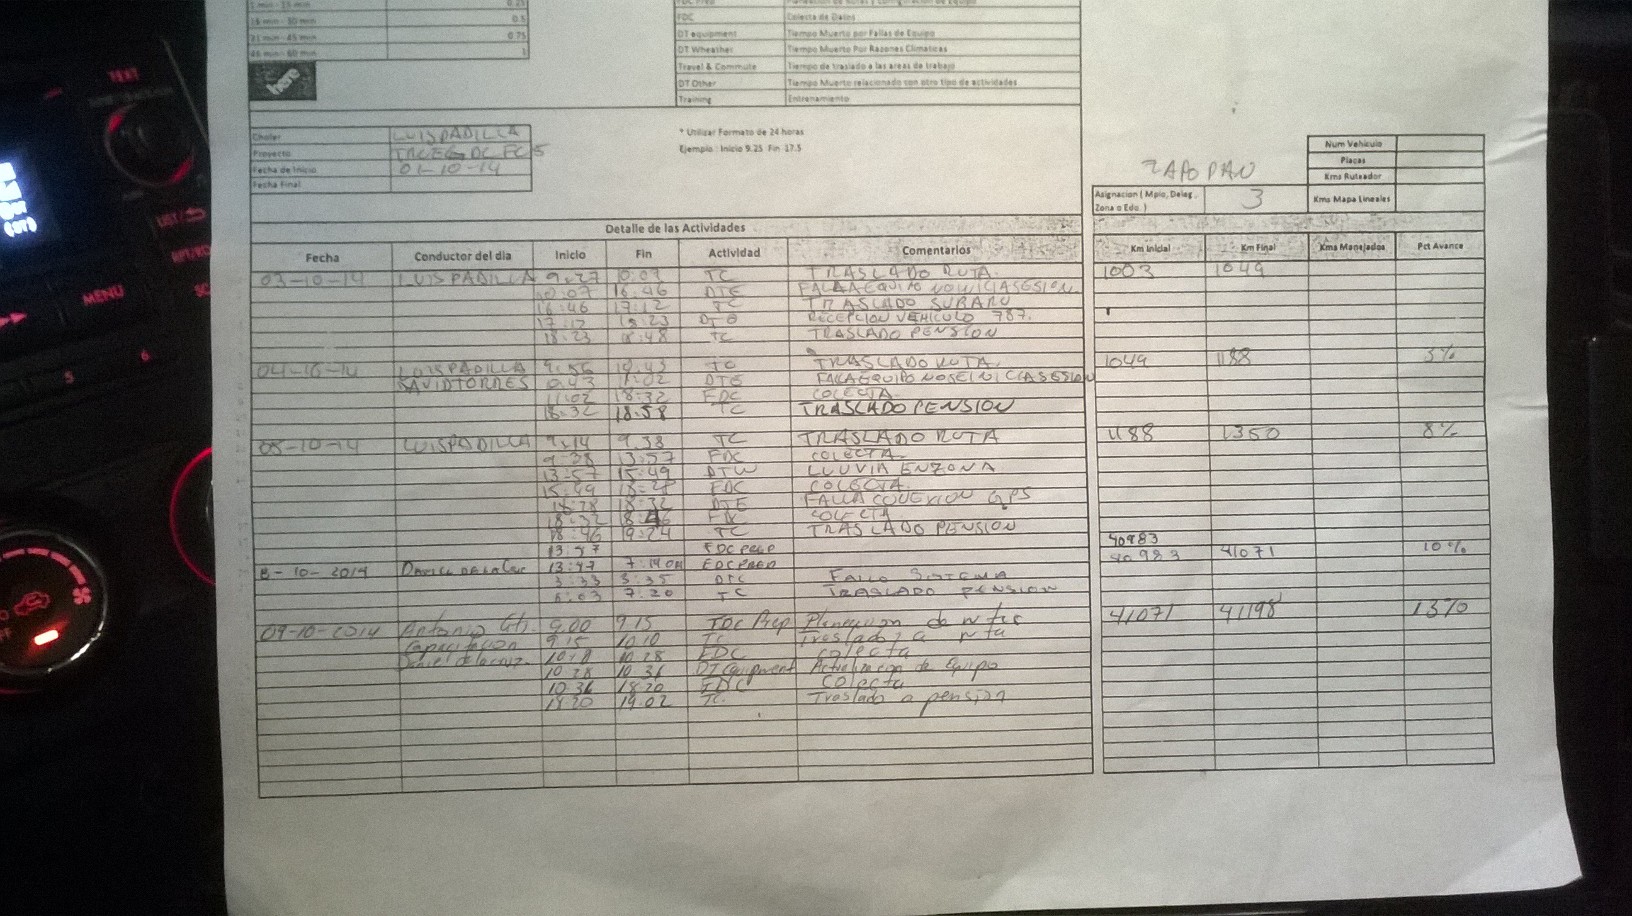 1 min - 15 min 0.25
16 min - 30 min 0.5
31 min - 45 min 0.75
46 min - 60 min 1
here
FDC Colecta de Datos
DT equipment Tiempo Muerto por Fallas de Equipo
DT Wheather Tiempo Muerto Por Razones Climaticas
Travel & Commute Tiempo de traslado a las areas de trabajo
DT Other Tiempo Muerto relacionado con otro tipo de actividades
Training Entrenamiento
Chofer LUIS PADILLA
Proyecto
Fecha de Inicio 01-10-14
Fecha Final
* Utilizar Formato de 24 horas
Ejemplo : Inicio 9.25 Fin 17.5
ZAPOPAN
Num Vehiculo
Placas
Kms Ruteador
Kms Mapa Lineales
Asignacion ( Mpio, Deleg, Zona o Edo. ) 3
Detalle de las Actividades
Fecha Conductor del dia Inicio Fin Actividad Comentarios Km Inicial Km Final Kms Manejados Pct Avance
03-10-14 LUIS PADILLA 9:27 10:07 TC TRASLADO RUTA. 1003 1049
10:07 16:46 DTE FALLA EQUIPO NO INICIA SESION
16:46 17:12 TC TRASLADO SUBARU
17:12 18:23 DTO RECEPCION VEHICULO 787.
18:23 18:48 TC TRASLADO PENSION
04-10-14 LUIS PADILLA 9:56 10:43 TC TRASLADO RUTA. 1049 1188 5%
DAVID TORRES 10:43 11:02 DTE FALLA EQUIPO NO SE INICIA SESION
11:02 18:32 FDC COLECTA.
18:32 18:58 TC TRASLADO PENSION
05-10-14 LUIS PADILLA 9:14 9:38 TC TRASLADO RUTA 1188 1350 8%
9:38 13:57 FDC COLECTA.
13:57 15:49 DTW LLUVIA EN ZONA
15:49 18:28 FDC COLECTA.
18:28 18:32 DTE FALLA CONEXION GPS
18:32 18:46 FDC COLECTA.
18:46 19:24 TC TRASLADO PENSION
40983
FDC PREP 40983 41071 10%
8-10-2014 13:47 FDC PREP
5:33 5:35 FALLO SISTEMA
6:03 7:20 TC TRASLADO PENSION
09-10-2014 Antonio 9:00 9:15 FDC Prep Planeacion de rutas 41071 41198 13%
Capacitacion 9:15 10:10 TC Traslado a ruta
Daniel de la Cruz. 10:10 10:28 FDC colecta
10:28 10:36 DT Equipment Actualizacion de Equipo
10:36 18:20 FDC Colecta
18:20 19:02 TC. Traslado a pension
TEXT
LIST/
RPT/
MENU
5
6